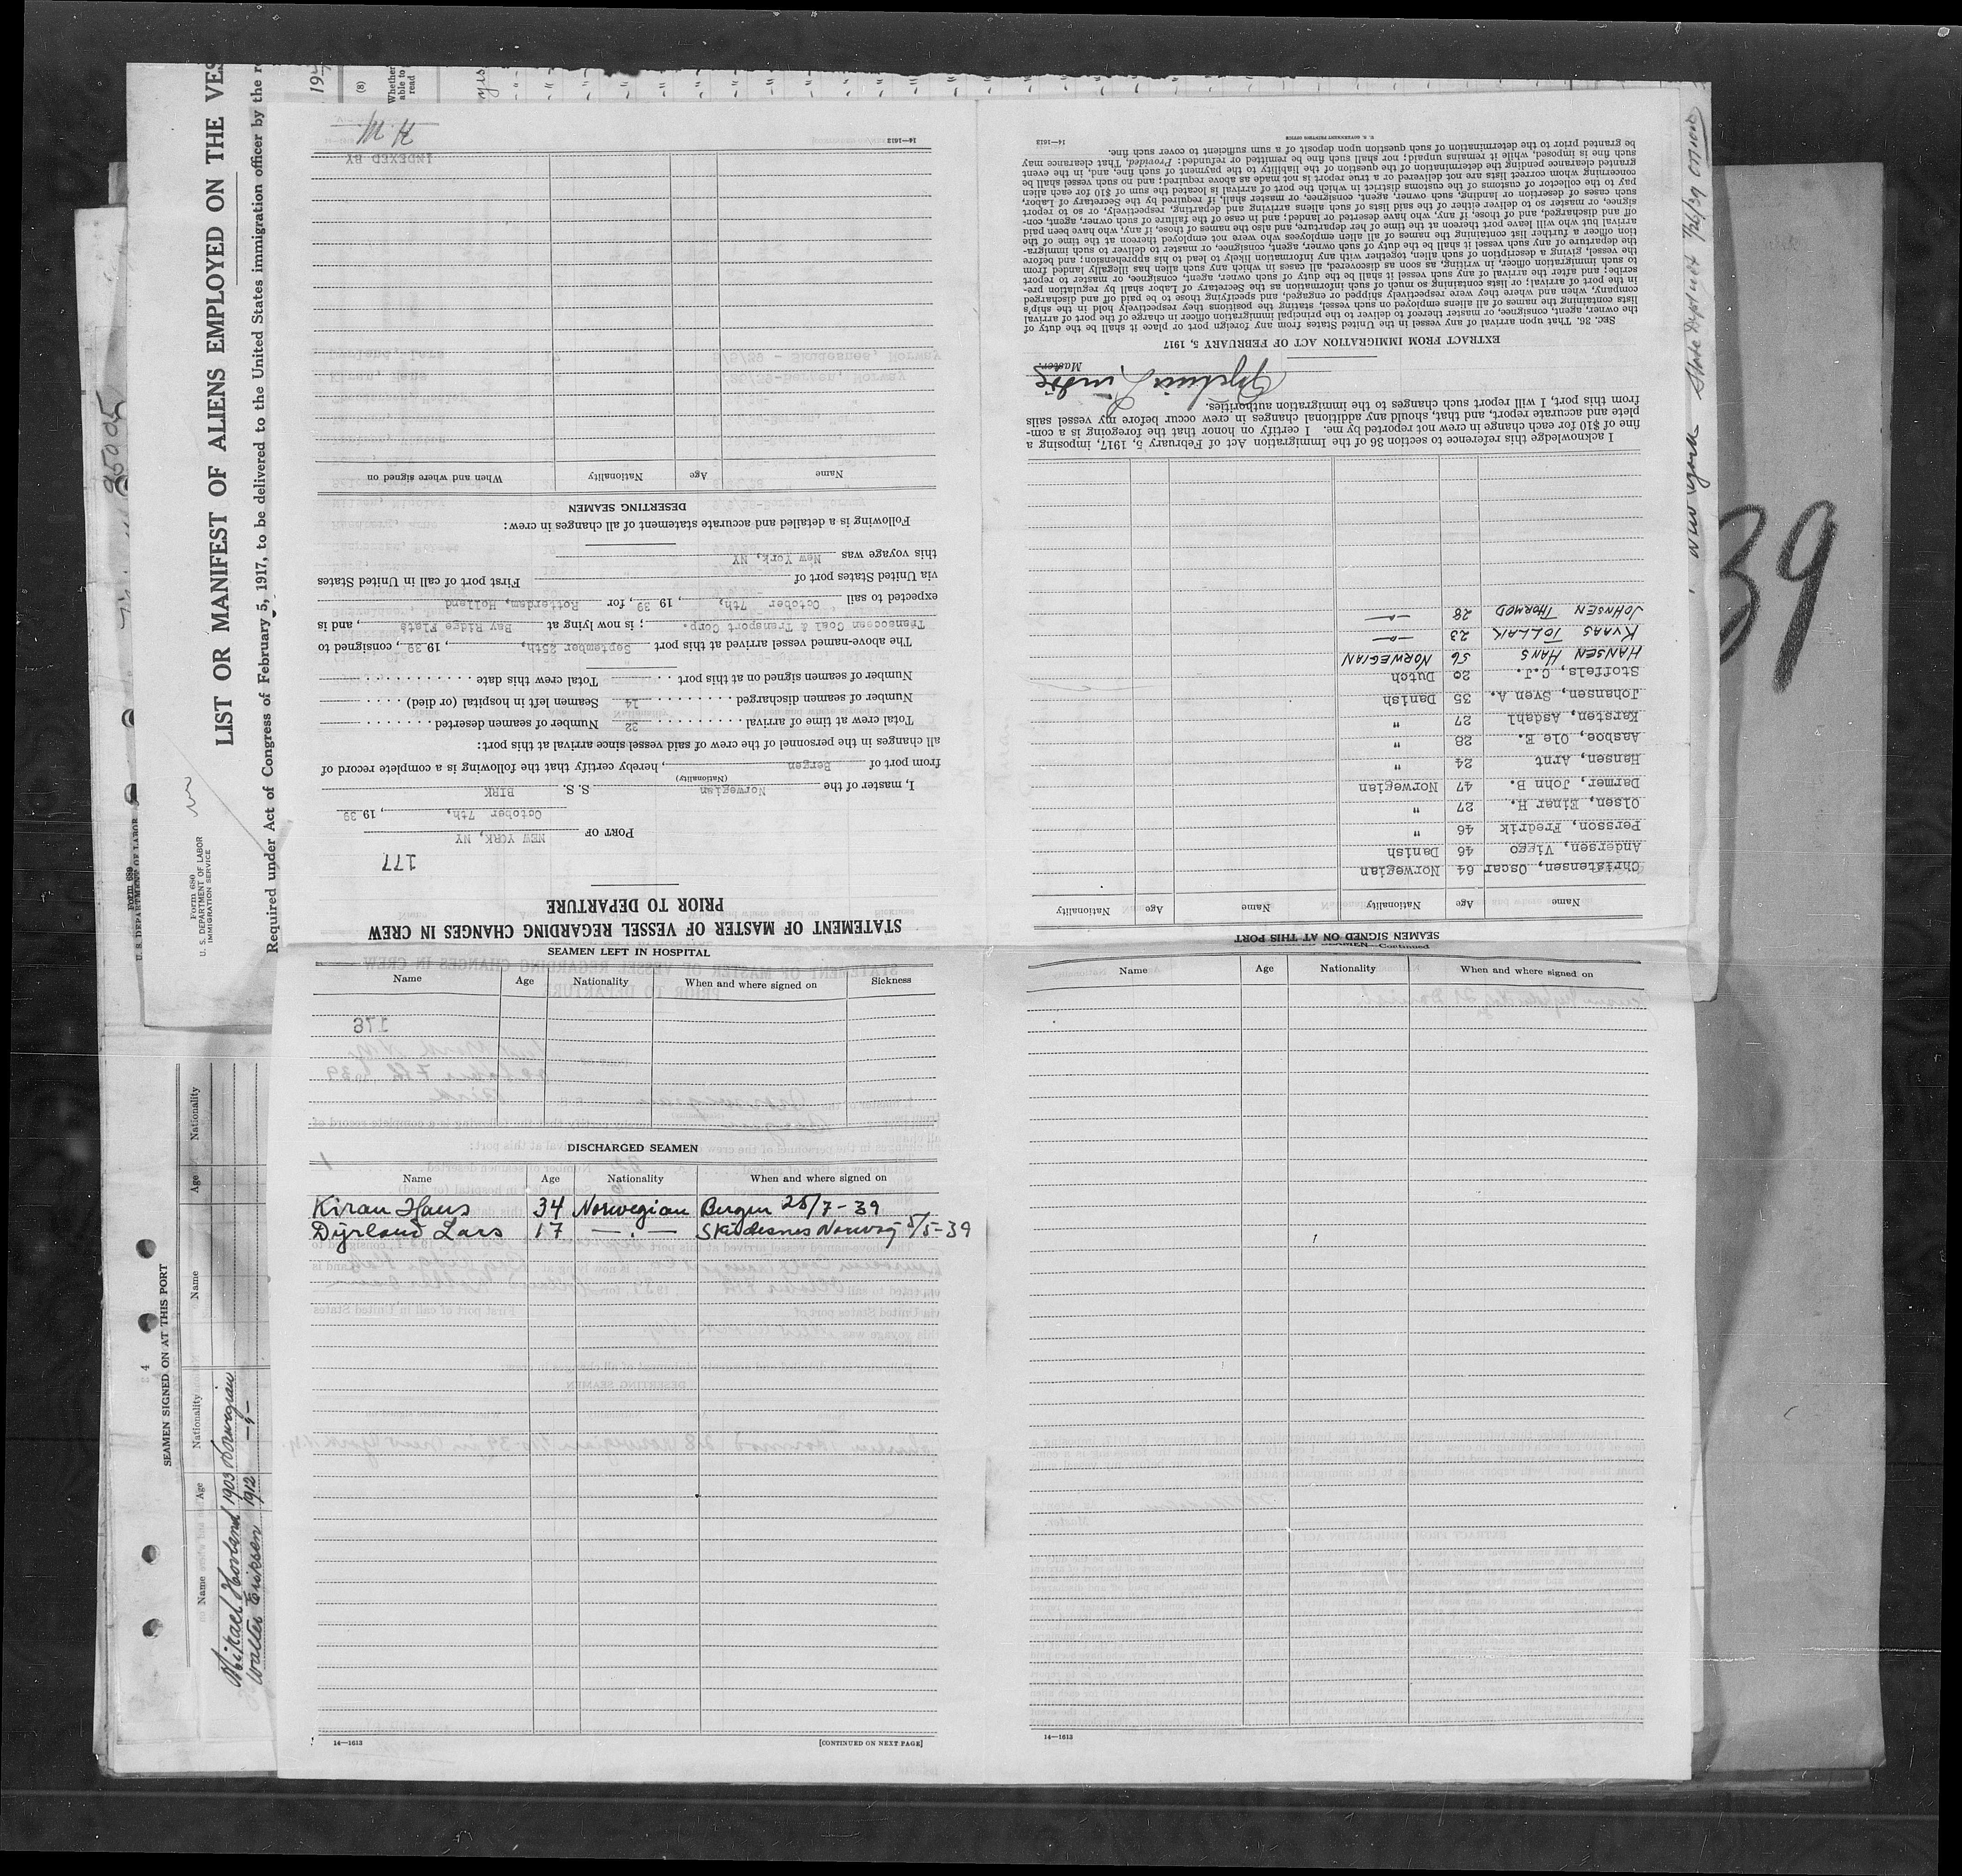 STATEMENT OF MASTER OF VESSEL REGARDING CHANGES IN CREW
PRIOR TO DEPARTURE
177
PORT OF NEW YORK, NY
October 7th, , 19 39
I, master of the Norwegian S. S. BIRK
(Nationality)
from port of Bergen , hereby certify that the following is a complete record of
all changes in the personnel of the crew of said vessel since arrival at this port:
Total crew at time of arrival 32 Number of seamen deserted
Number of seamen discharged 14 Seamen left in hospital (or died)
Number of seamen signed on at this port Total crew this date
The above-named vessel arrived at this port September 25th, , 19 39, consigned to
Transocean Coal & Transport Corp. ; is now lying at Bay Ridge Flats , and is
expected to sail October 7th, , 19 39, for Rotterdam, Holland
via United States port of First port of call in United States
this voyage was New York, NY
Following is a detailed and accurate statement of all changes in crew:
DESERTING SEAMEN
Name Age Nationality When and where signed on
INDEXED BY
14—1613
SEAMEN SIGNED ON AT THIS PORT
Name Age Nationality Name Age Nationality
Christensen, Oscar 64 Norwegian
Andersen, Viggo 46 Danish
Persson, Fredrik 46 "
Olsen, Einer H. 27 "
Darmer, John B. 47 Norwegian
Hansen, Arnt 24 "
Aasboe, Ole E. 28 "
Karsten, Asdahl 27 "
Johansen, Sven A. 35 Danish
Stoffels, C.J. 20 Dutch
HANSEN HANS 56 NORWEGIAN
KVAAS TOLLAK 23 —"—
JOHNSEN THORMOD 28 —"—
I acknowledge this reference to section 36 of the Immigration Act of February 5, 1917, imposing a
fine of $10 for each change in crew not reported by me. I certify on honor that the foregoing is a com-
plete and accurate report, and that, should any additional changes in crew occur before my vessel sails
from this port, I will report such changes to the immigration authorities.
Master.
EXTRACT FROM IMMIGRATION ACT OF FEBRUARY 5, 1917
SEC. 36. That upon arrival of any vessel in the United States from any foreign port or place it shall be the duty of
the owner, agent, consignee, or master thereof to deliver to the principal immigration officer in charge of the port of arrival
lists containing the names of all aliens employed on such vessel, stating the positions they respectively hold in the ship's
company, when and where they were respectively shipped or engaged, and specifying those to be paid off and discharged
in the port of arrival; or lists containing so much of such information as the Secretary of Labor shall by regulation pre-
scribe; and after the arrival of any such vessel it shall be the duty of such owner, agent, consignee, or master to report
to such immigration officer, in writing, as soon as discovered, all cases in which any such alien has illegally landed from
the vessel, giving a description of such alien, together with any information likely to lead to his apprehension; and before
the departure of any such vessel it shall be the duty of such owner, agent, consignee, or master to deliver to such immigra-
tion officer a further list containing the names of all alien employees who were not employed thereon at the time of the
arrival but who will leave port thereon at the time of her departure, and also the names of those, if any, who have been paid
off and discharged, and of those, if any, who have deserted or landed; and in case of the failure of such owner, agent, con-
signee, or master so to deliver either of the said lists of such aliens arriving and departing, respectively, or so to report
such cases of desertion or landing, such owner, agent, consignee, or master shall, if required by the Secretary of Labor,
pay to the collector of customs of the customs district in which the port of arrival is located the sum of $10 for each alien
concerning whom correct lists are not delivered or a true report is not made as above required; and no such vessel shall be
granted clearance pending the determination of the question of the liability to the payment of such fine, and, in the event
such fine is imposed, while it remains unpaid; nor shall such fine be remitted or refunded: Provided, That clearance may
be granted prior to the determination of such question upon deposit of a sum sufficient to cover such fine.
U. S. GOVERNMENT PRINTING OFFICE 14—1613
SEAMEN LEFT IN HOSPITAL
Name Age Nationality When and where signed on Sickness
DISCHARGED SEAMEN
Name Age Nationality When and where signed on
Kiran Hans 34 Norwegian Bergen 28/7-39
Dyrland Lars 17 —"— Skudesnes Norway 5/5-39
14—1613 [CONTINUED ON NEXT PAGE]
Continued
Name Age Nationality When and where signed on
14—1613
LIST OR MANIFEST OF ALIENS EMPLOYED ON THE VES
Required under Act of Congress of February 5, 1917, to be delivered to the United States immigration officer by the r
Form 680
U. S. DEPARTMENT OF LABOR
IMMIGRATION SERVICE
Form 680
U. S. DEPARTMENT OF LABOR
(8)
Whether
able to
read
SEAMEN SIGNED ON AT THIS PORT
Name Age Nationality Name Age Nationality
Mikael Hovland 1903 Norwegian
Walter Eriksen 1912 —"—
95005
New York
39